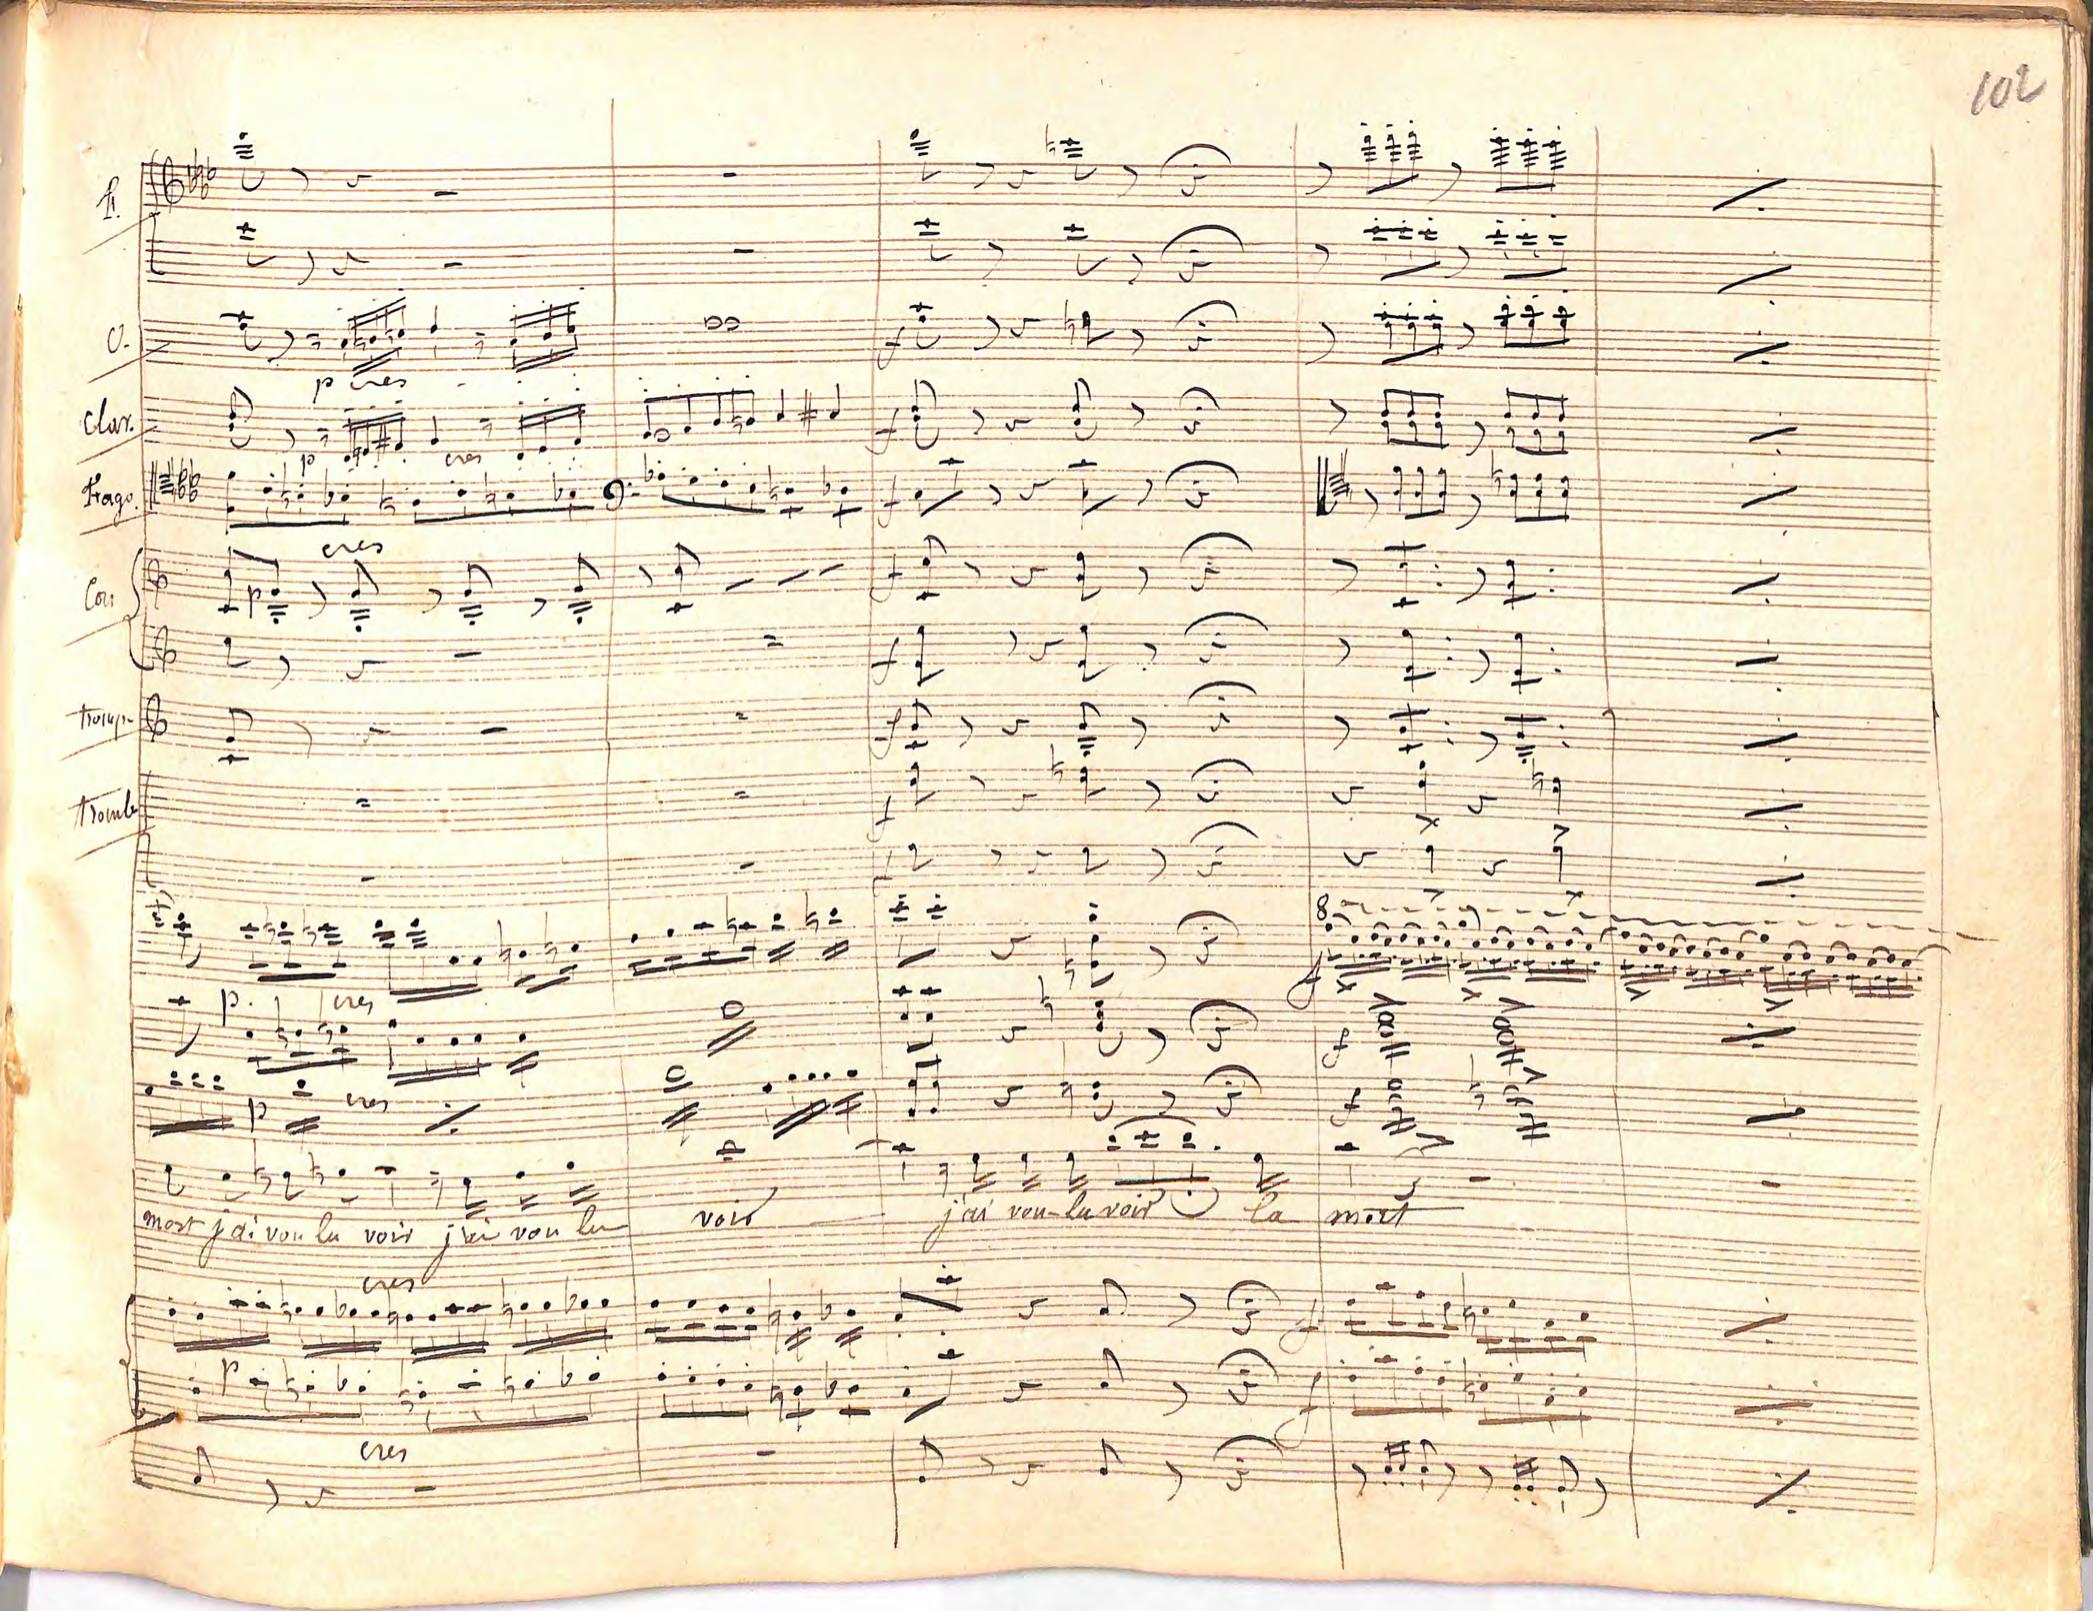 102
fl.
O.
p cres
Clar.
p cres
Fago.
f
cres
Cor
p
f
f
Tromp
f
Tromb
f
f
8
p. cres
f
f
p cres
f
mort j'ai vou lu voir j'ai vou lu voir j'ai vou-lu voir la mort
cres
f
p
f
cres